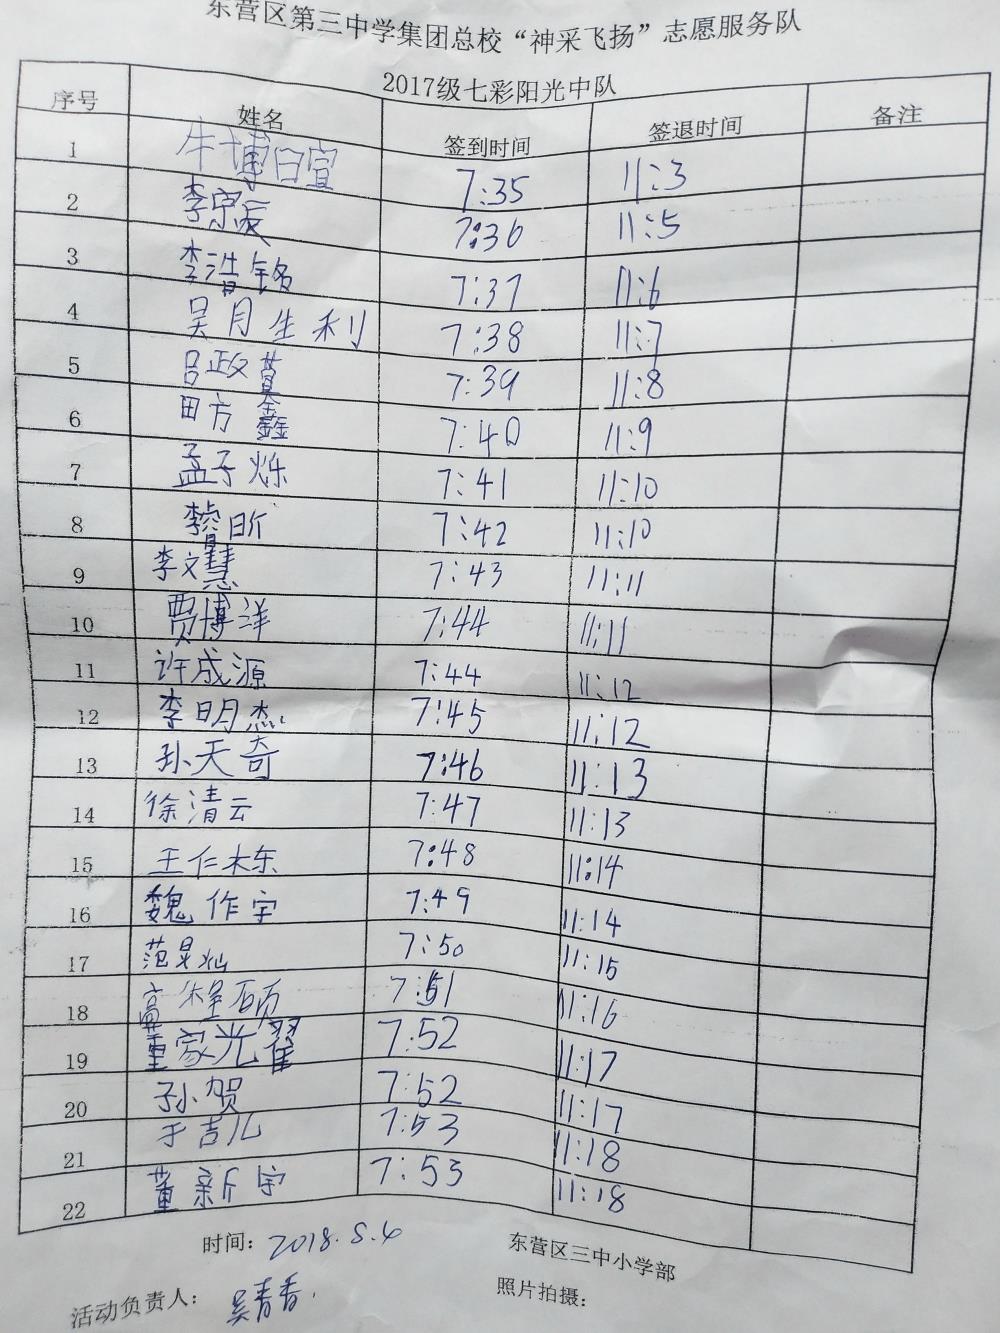 东营区第三中学集团总校“神采飞扬”志愿服务队
2017级七彩阳光中队
序号 姓名 签到时间 签退时间 备注
1 牛博宣 7:35 11:3
2 李宗辰 7:36 11:5
3 李浩铭 7:37 11:6
4 吴月生利 7:38 11:7
5 吕政 7:39 11:8
6 田方鑫 7:40 11:9
7 孟子烁 7:41 11:10
8 李 昕 7:42 11:10
9 李文慧 7:43 11:11
10 贾博洋 7:44 11:11
11 许成源 7:44 11:12
12 李明杰 7:45 11:12
13 孙天奇 7:46 11:13
14 徐清云 7:47 11:13
15 王仁栋 7:48 11:14
16 魏作宇 7:49 11:14
17 范昊灿 7:50 11:15
18 高 硕 7:51 11:16
19 董家光翟 7:52 11:17
20 孙贺 7:52 11:17
21 于吉儿 7:53 11:18
22 董新宇 7:53 11:18
时间: 2018.5.4 东营区三中小学部
活动负责人: 吴青香. 照片拍摄: